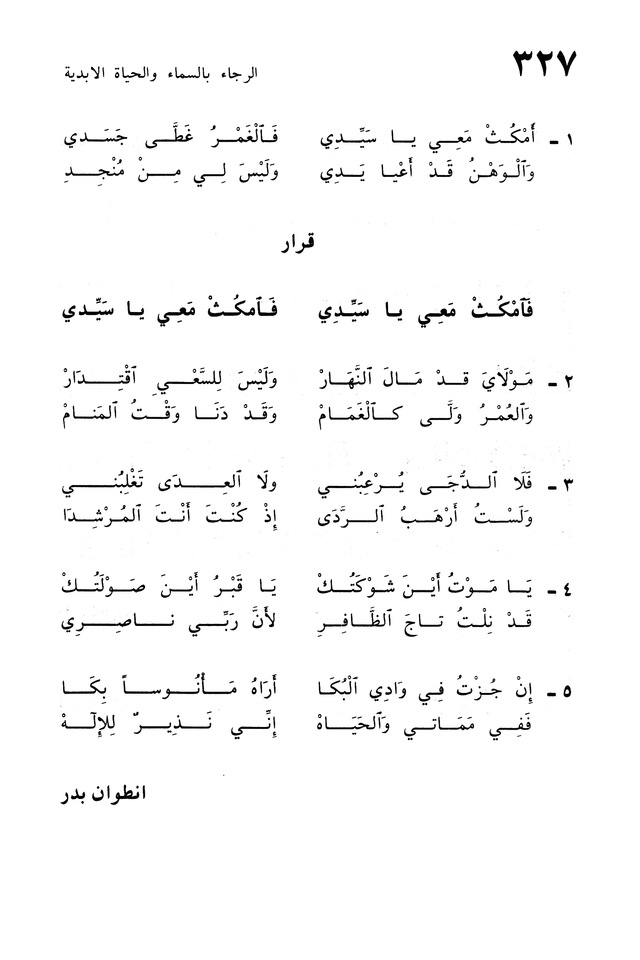 ٣٢٧
الرجاء بالسماء والحياة الابدية
١ - أَمْكُثْ مَعِي يا سَيِّدِي فَٱلْغَمْرُ غَطَّى جَسَدي
وَٱلْوَهْنُ قَدْ أَعْيا يَدِي وَلَيْسَ لِي مِنْ مُنْجِدِ
قرار
فَٱمْكُثْ مَعِي يا سَيِّدِي فَٱمكُثْ مَعِي يا سَيِّدي
٢ - مَوْلَايَ قدْ مَالَ ٱلنَّهَارْ وَلَيْسَ لِلسَّعْيِ ٱقْتِدَارْ
وَالعُمْرُ وَلَّى كـٱلْغَمَامْ وَقَدْ دَنَا وَقْتُ ٱلمَنَامْ
٣ - فَلَا ٱلدُّجَى يُرْعِبُني ولَا ٱلعِدَى تَغْلِبُني
وَلَسْتُ أَرْهَبُ ٱلرَّدَى إِذْ كُنْتَ أَنْتَ ٱلمُرْشِدَا
٤ - يَا مَوْتُ أَيْنَ شَوْكَتُكْ يَا قَبْرُ أَيْنَ صَوْلَتُكْ
قَدْ نِلْتُ تاجَ ٱلظَّافِرِ لأَنَّ رَبِّي ناصِرِي
٥ - إِنْ جُزْتُ فِي وَادِي ٱلْبُكَا أَرَاهُ مَأْنُوساً بِكَا
فَفِي مَمَاتي وَٱلحَيَاهْ إِنِّي نَذِيرٌ لِلإِلٰهْ
انطوان بدر